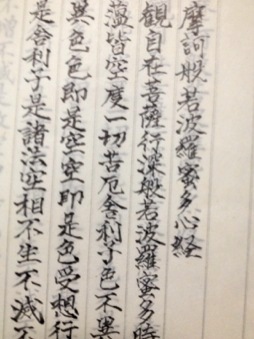 摩訶般若波羅蜜多心経
観自在菩薩行深般若波羅蜜多時
蘊皆空度一切苦厄舎利子色不異
異色色即是空空即是色受想行
是舎利子是諸法空相不生不滅不